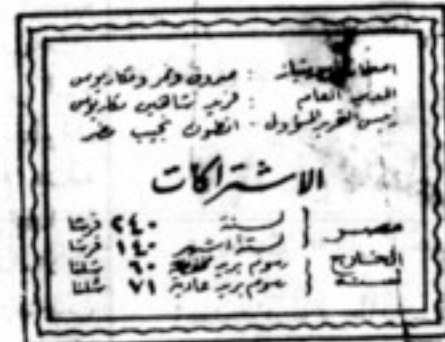 اصحاب الامتياز : صروف ونمر ومكاريوس
المدير العام : فريد شاهين مكاريوس
رئيس التحرير المسؤول - انطون نجيب مطر
الاشتراكات
مصر لسنة ٢٤٠ قرشا
لستة اشهر ١٤٠ قرشا
الخارج رسوم بريد مخفضة ٦٠ شلنا
لسنة رسوم بريد عادية ٧١ شلنا